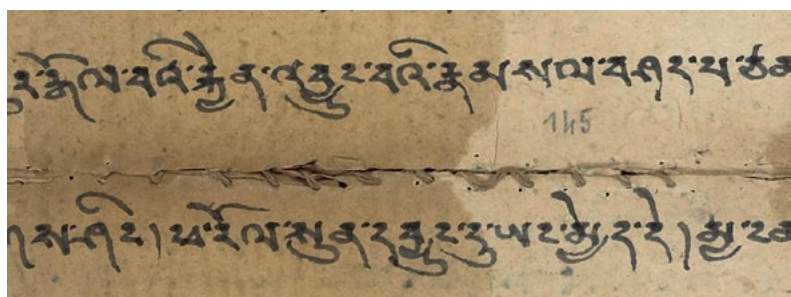 རྒོལ་བའི་རྐྱེན་འབྱུང་བའི་རྣམས་ལ་བཤད་པ་ཙམ
145
ས་ཤིང། ཕ་རོལ་སུན་དབྱུང་དུ་ཡང་མྱེད་དེ། མྱ་ངན